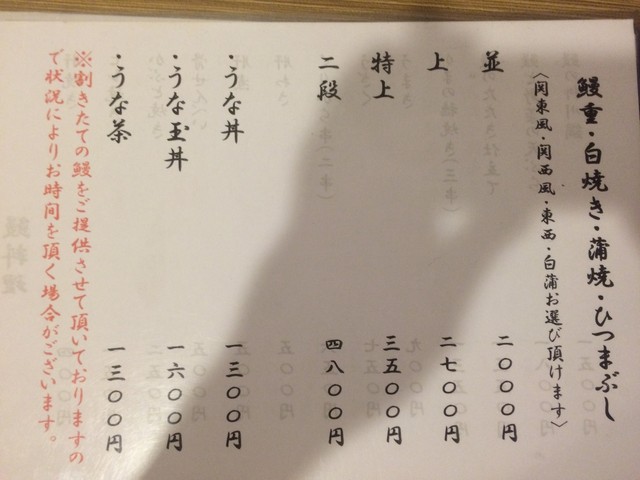 鰻重・白焼き・蒲焼・ひつまぶし
〈関東風・関西風・東西・白蒲お選び頂けます〉
並 二〇〇〇円
上 二七〇〇円
特上 三五〇〇円
二段 四八〇〇円
・うな丼 一三〇〇円
・うな玉丼 一六〇〇円
・うな茶 一三〇〇円
※割きたての鰻をご提供させて頂いておりますの
で状況によりお時間を頂く場合がございます。